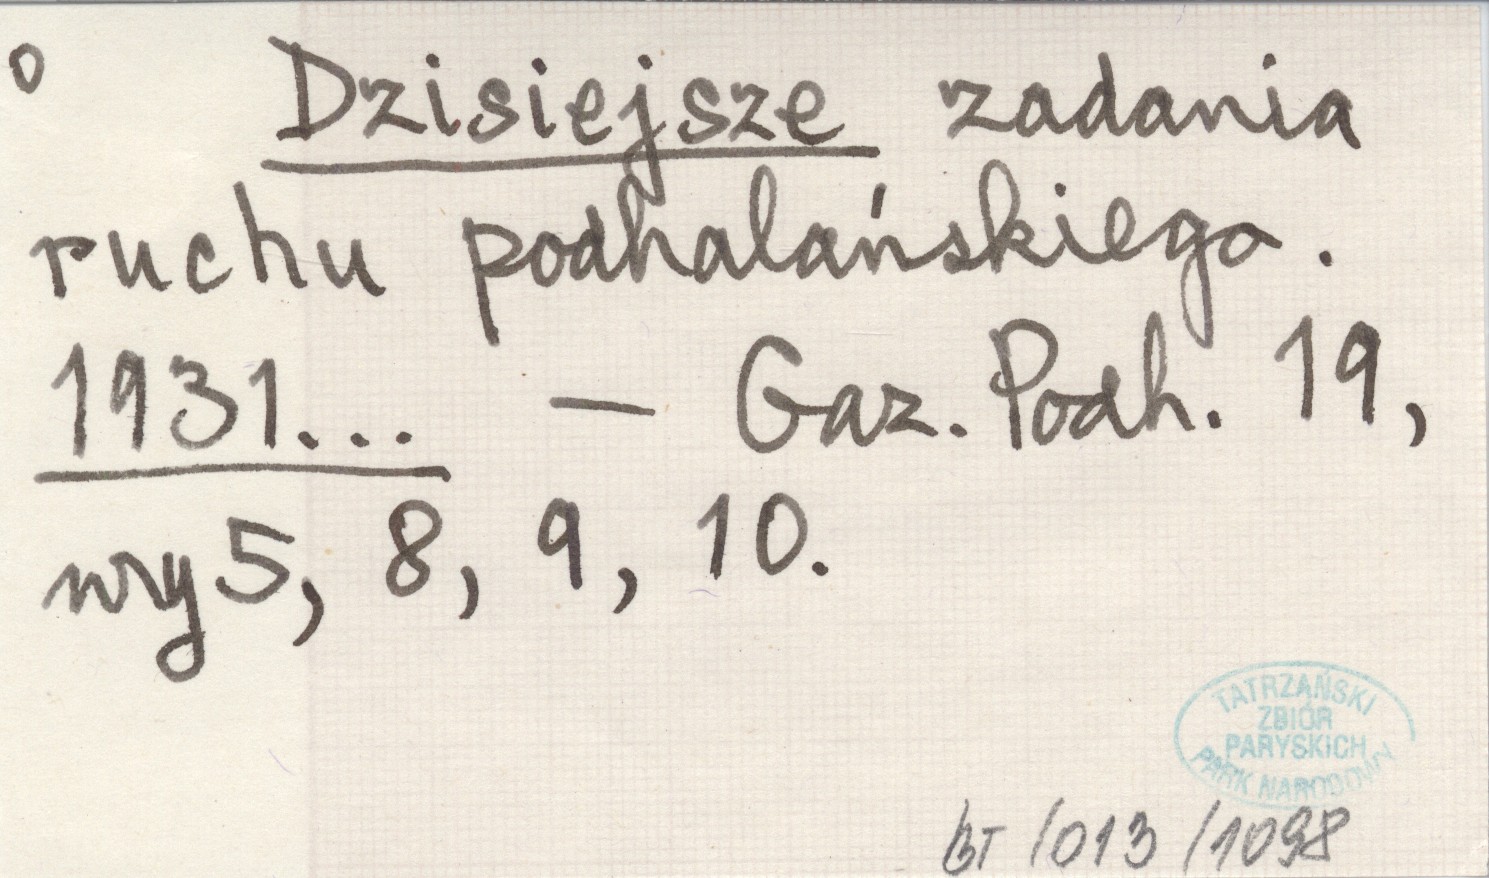 o Dzisiejsze zadania
ruchu podhalańskiego.
1931... — Gaz. Podh. 19,
nry 5, 8, 9, 10.
TATRZAŃSKI
ZBIÓR
PARYSKICH
PARK NARODOWY
BT /013 /1098